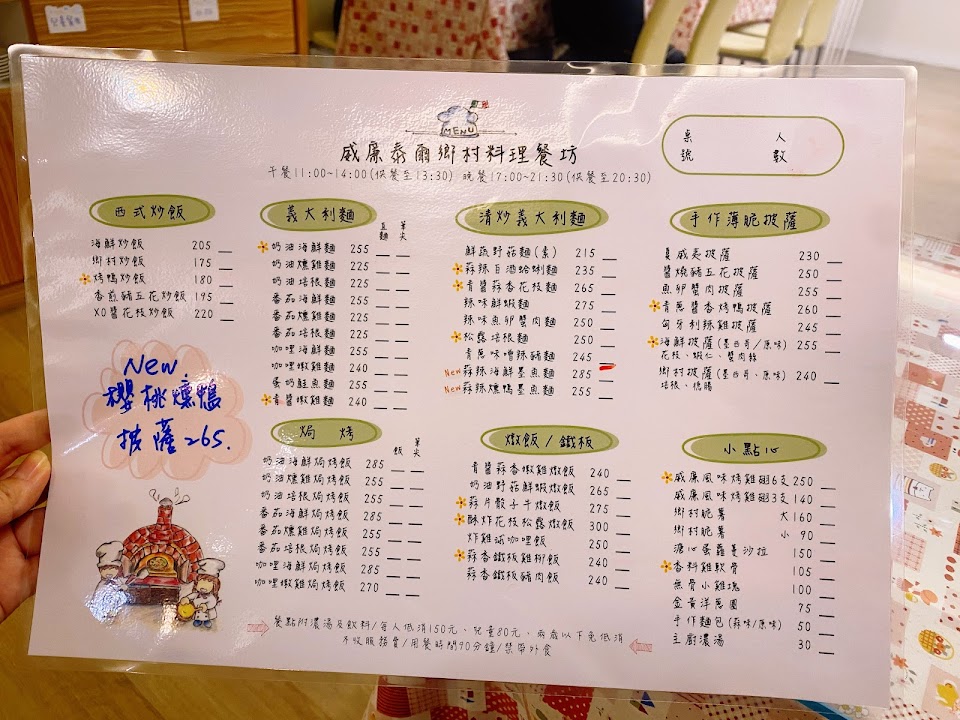 MENU
威廉泰爾鄉村料理餐坊
午餐11:00~14:00(供餐至13:30) 晚餐17:00~21:30(供餐至20:30)
桌號 人數
西式炒飯
海鮮炒飯 205
鄉村炒飯 175
烤鴨炒飯 180
香煎豬五花炒飯 195
XO醬花枝炒飯 220
New
櫻桃燻鴨
披薩 265.
義大利麵 直麵 筆尖
奶油海鮮麵 255
奶油燻雞麵 225
奶油培根麵 225
番茄海鮮麵 255
番茄燻雞麵 225
番茄培根麵 225
咖哩海鮮麵 255
咖哩嫩雞麵 240
蛋奶鮭魚麵 255
青醬嫩雞麵 240
焗烤 飯 筆尖
奶油海鮮焗烤飯 285
奶油燻雞焗烤飯 255
奶油培根焗烤飯 255
番茄海鮮焗烤飯 285
番茄燻雞焗烤飯 255
番茄培根焗烤飯 255
咖哩海鮮焗烤飯 285
咖哩嫩雞焗烤飯 270
清炒義大利麵
鮮蔬野菇麵(素) 215
蒜辣白酒蛤蜊麵 235
青醬蒜香花枝麵 265
辣味鮮蝦麵 275
辣味魚卵蟹肉麵 250
松露培根麵 250
青蔥味噌辣豬麵 245
New 蒜辣海鮮墨魚麵 285
New 蒜辣燻鴨墨魚麵 255
燉飯/鐵板
青醬蒜香嫩雞燉飯 240
奶油野菇鮮蝦燉飯 265
蒜片骰子牛燉飯 275
酥炸花枝松露燉飯 300
炸雞減咖哩飯 250
蒜香鐵板雞柳飯 240
蒜香鐵板豬肉飯 240
手作薄脆披薩
夏威夷披薩 230
醬燒豬五花披薩 250
魚卵蟹肉披薩 255
青蔥醬香烤鴨披薩 260
匈牙利辣雞披薩 245
海鮮披薩(墨西哥/原味) 255
花枝、蝦仁、蟹肉絲
鄉村披薩(墨西哥、原味) 240
培根、德腸
小點心
威廉風味烤雞翅6支 250
威廉風味烤雞翅3支 140
鄉村脆薯 大 160
鄉村脆薯 小 90
溏心蛋蘿蔓沙拉 150
香料雞軟骨 105
無骨小雞塊 100
金黃洋蔥圈 75
手作麵包(蒜味/原味) 50
主廚濃湯 30
餐點附濃湯及飲料/每人低消150元、兒童80元、兩歲以下免低消
不收服務費/用餐時間90分鐘/禁帶外食